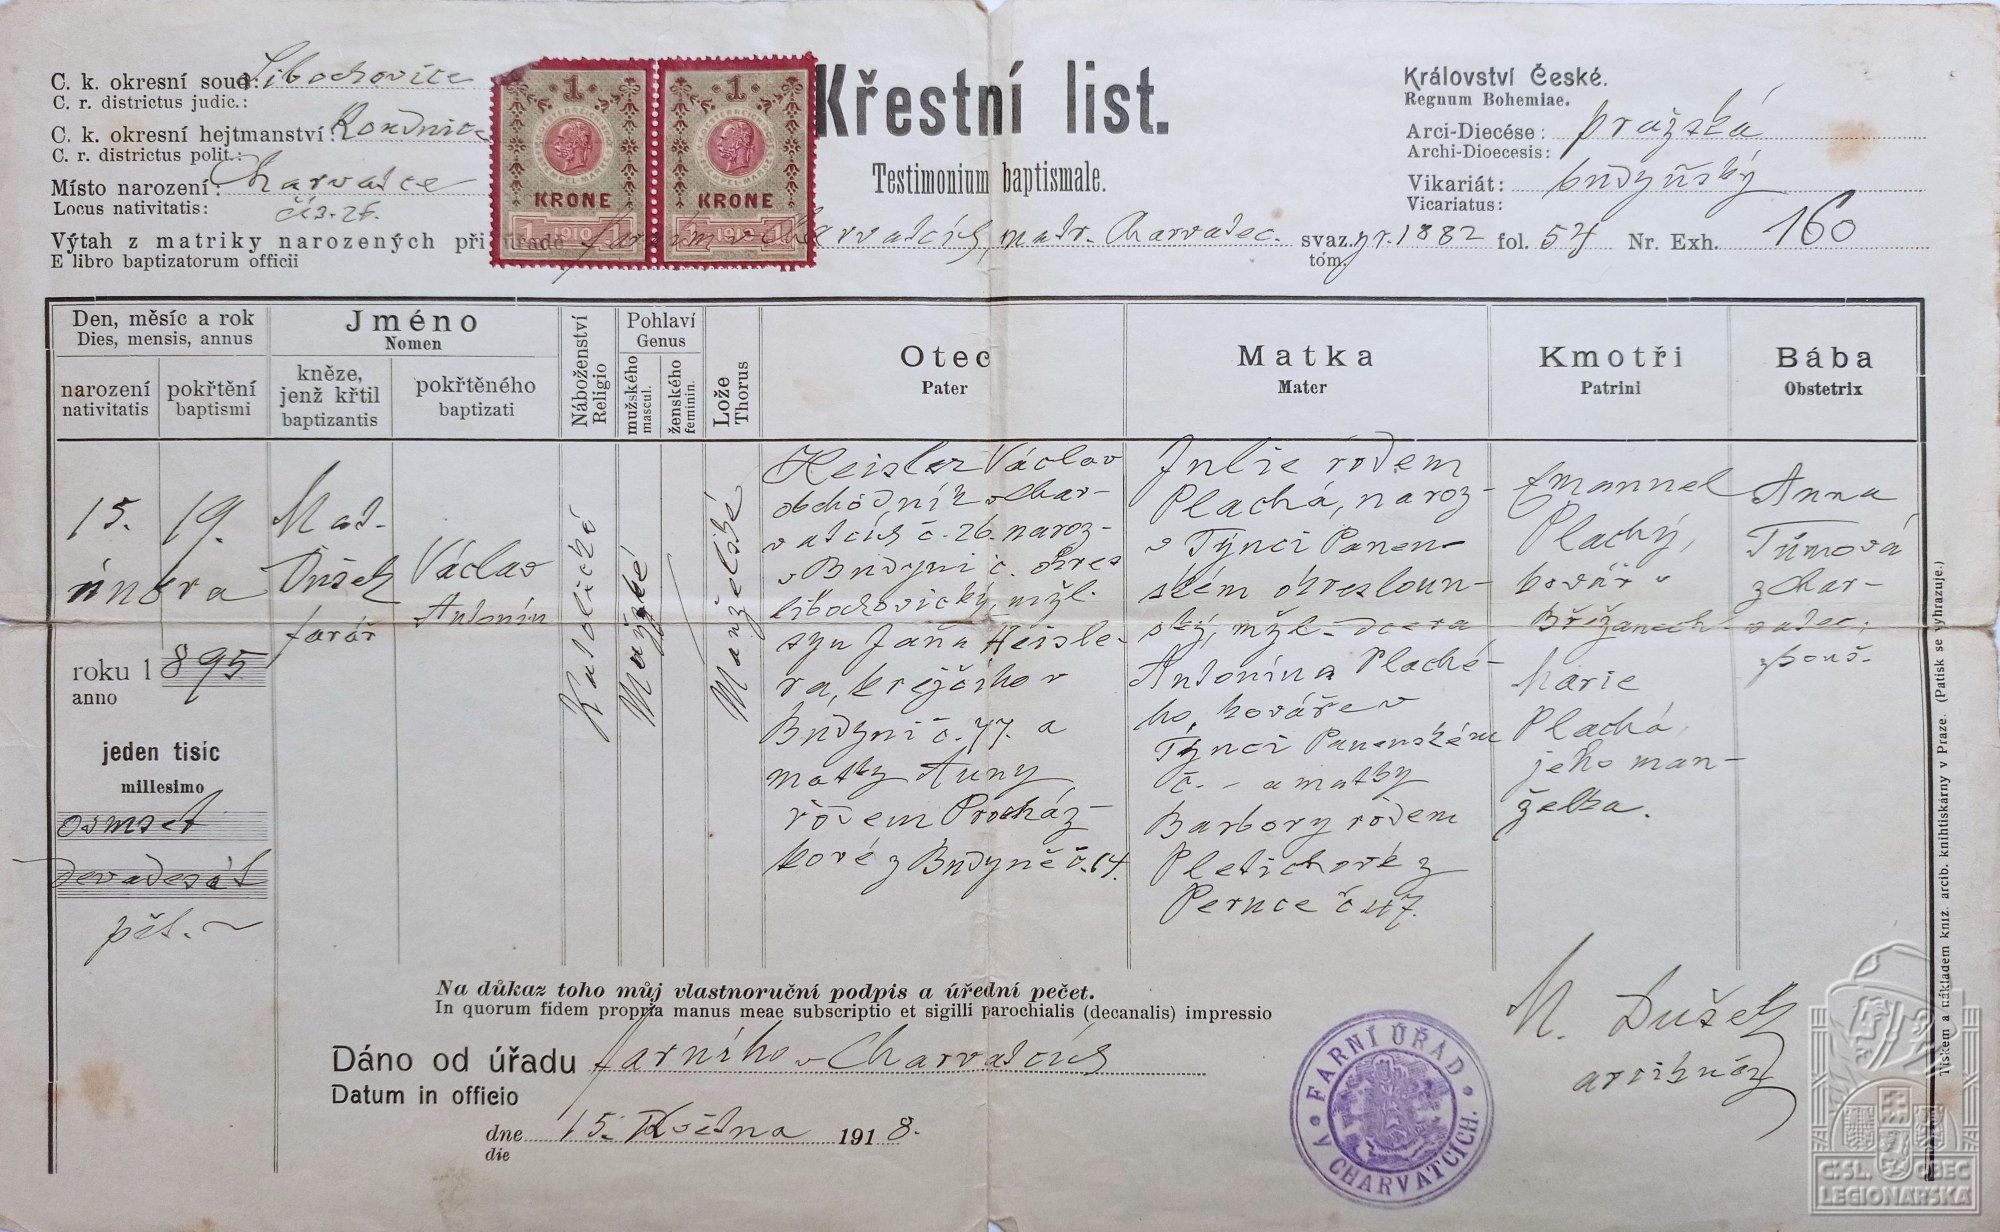 C. k. okresní soud: Libochovice
C. r. districtus judic.:
C. k. okresní hejtmanství: Roudnice
C. r. districtus polit.:
Místo narození: Charvatce
Locus nativitatis: čís. 26.
Výtah z matriky narozených při úřadě farním v Charvatcích, matr. Charvatec. svaz. yr. 1882 fol. 54 Nr. Exh. 160
E libro baptizatorum officii tóm.
1
KRONE
1 1910 1
1
KRONE
1 1910 1
Křestní list.
Testimonium baptismale.
Království České.
Regnum Bohemiae.
Arci-Diecése: pražská
Archi-Dioecesis:
Vikariát: budyňský
Vicariatus:
Den, měsíc a rok
Dies, mensis, annus
narození
nativitatis
pokřtění
baptismi
Jméno
Nomen
kněze,
jenž křtil
baptizantis
pokřtěného
baptizati
Náboženství
Religio
Pohlaví
Genus
mužského
mascul.
ženského
feminin.
Lože
Thorus
Otec
Pater
Matka
Mater
Kmotři
Patrini
Bába
Obstetrix
15. 19.
února
roku 1895
anno
jeden tisíc
millesimo
osmset
devadesát
pět. ~
Mat.
Dušek
farář
Václav
Antonín
Katolické
Mužské
Manželské
Heisler Václav
obchodník v Char-
vatcích č. 26. naroz.
v Budyni č. okres
libochovický, mžl.
syn Jana Heisle-
ra, krejčího v
Budyni č. 77. a
matky Anny
rodem Procház-
kové z Budyně č. 14.
Julie rodem
Plachá, naroz-
v Týnci Panen-
ském okres loun-
ský, mžl. dcera
Antonína Plaché-
ho, kováře v
Týnci Panenském
č. - a matky
Barbory rodem
Pletichové z
Peruce č 47.
Emanuel
Plachý,
kovář v
Břežanech
Marie
Plachá,
jeho man-
želka.
Anna
Tůmová
z Char-
vatec,
zkouš.
Na důkaz toho můj vlastnoruční podpis a úřední pečet.
In quorum fidem propria manus meae subscriptio et sigilli parochialis (decanalis) impressio
Dáno od úřadu farního v Charvatcích
Datum in officio
dne 15. Května 1918.
die
FARNÍ ÚŘAD
V CHARVATCÍCH.
M. Dušek
Tiskem a nákladem kníž. arcib. knihtiskárny v Praze. (Patisk se vyhrazuje.)
ČSL. OBEC
LEGIONÁŘSKÁ